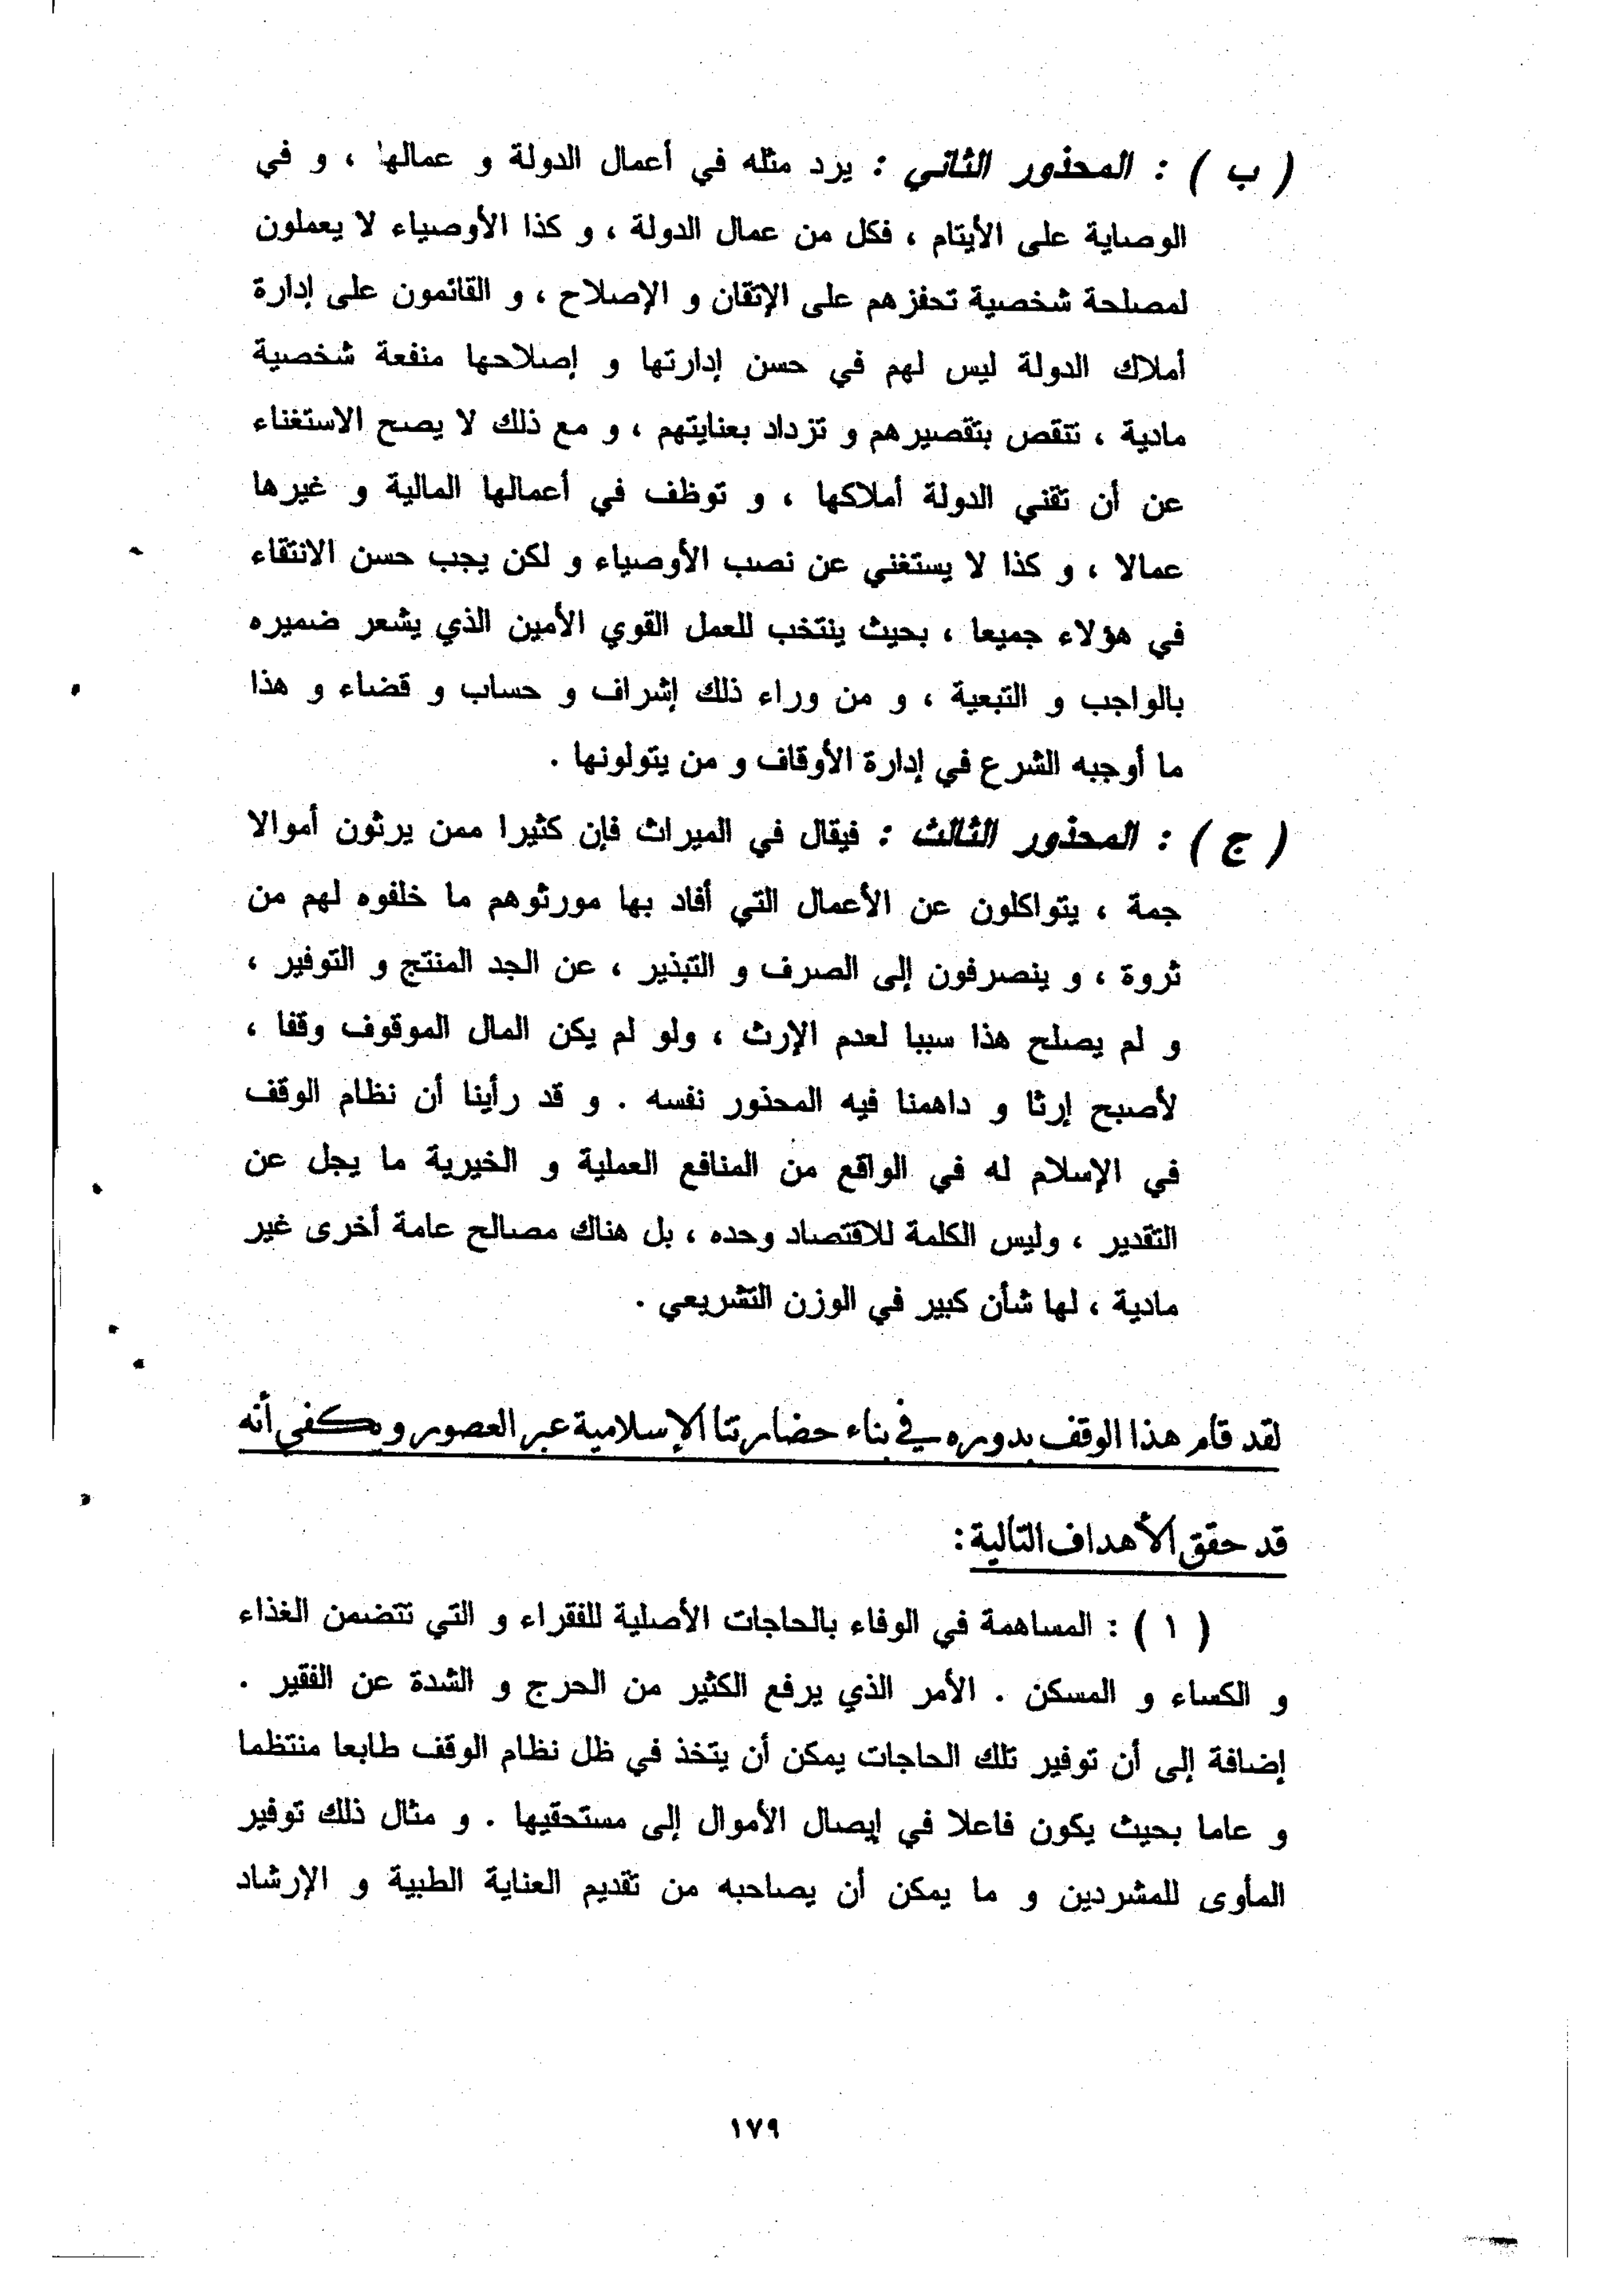 ( ب ) : المحذور الثاني : يرد مثله في أعمال الدولة و عمالها ، و في
الوصاية على الأيتام ، فكل من عمال الدولة ، و كذا الأوصياء لا يعملون
لمصلحة شخصية تحفزهم على الإتقان و الإصلاح ، و القائمون على إدارة
أملاك الدولة ليس لهم في حسن إدارتها و إصلاحها منفعة شخصية
مادية ، تنقص بتقصيرهم و تزداد بعنايتهم ، و مع ذلك لا يصح الاستغناء
عن أن تقني الدولة أملاكها ، و توظف في أعمالها المالية و غيرها
عمالا ، و كذا لا يستغني عن نصب الأوصياء و لكن يجب حسن الانتقاء
في هؤلاء جميعا ، بحيث ينتخب للعمل القوي الأمين الذي يشعر ضميره
بالواجب و التبعية ، و من وراء ذلك إشراف و حساب و قضاء و هذا
ما أوجبه الشرع في إدارة الأوقاف و من يتولونها .
( ج ) : المحذور الثالث : فيقال في الميراث فإن كثيرا ممن يرثون أموالا
جمة ، يتواكلون عن الأعمال التي أفاد بها مورثوهم ما خلفوه لهم من
ثروة ، و ينصرفون إلى الصرف و التبذير ، عن الجد المنتج و التوفير ،
و لم يصلح هذا سببا لعدم الإرث ، ولو لم يكن المال الموقوف وقفا ،
لأصبح إرثا و داهمنا فيه المحذور نفسه . و قد رأينا أن نظام الوقف
في الإسلام له في الواقع من المنافع العملية و الخيرية ما يجل عن
التقدير ، وليس الكلمة للاقتصاد وحده ، بل هناك مصالح عامة أخرى غير
مادية ، لها شأن كبير في الوزن التشريعي .
لقد قام هذا الوقف بدوره في بناء حضارتنا الإسلامية عبر العصور و يكفي أنه
قد حقق الأهداف التالية :
( ١ ) : المساهمة في الوفاء بالحاجات الأصلية للفقراء و التي تتضمن الغذاء
و الكساء و المسكن . الأمر الذي يرفع الكثير من الحرج و الشدة عن الفقير .
إضافة إلى أن توفير تلك الحاجات يمكن أن يتخذ في ظل نظام الوقف طابعا منتظما
و عاما بحيث يكون فاعلا في إيصال الأموال إلى مستحقيها . و مثال ذلك توفير
المأوى للمشردين و ما يمكن أن يصاحبه من تقديم العناية الطبية و الإرشاد
١٧٩